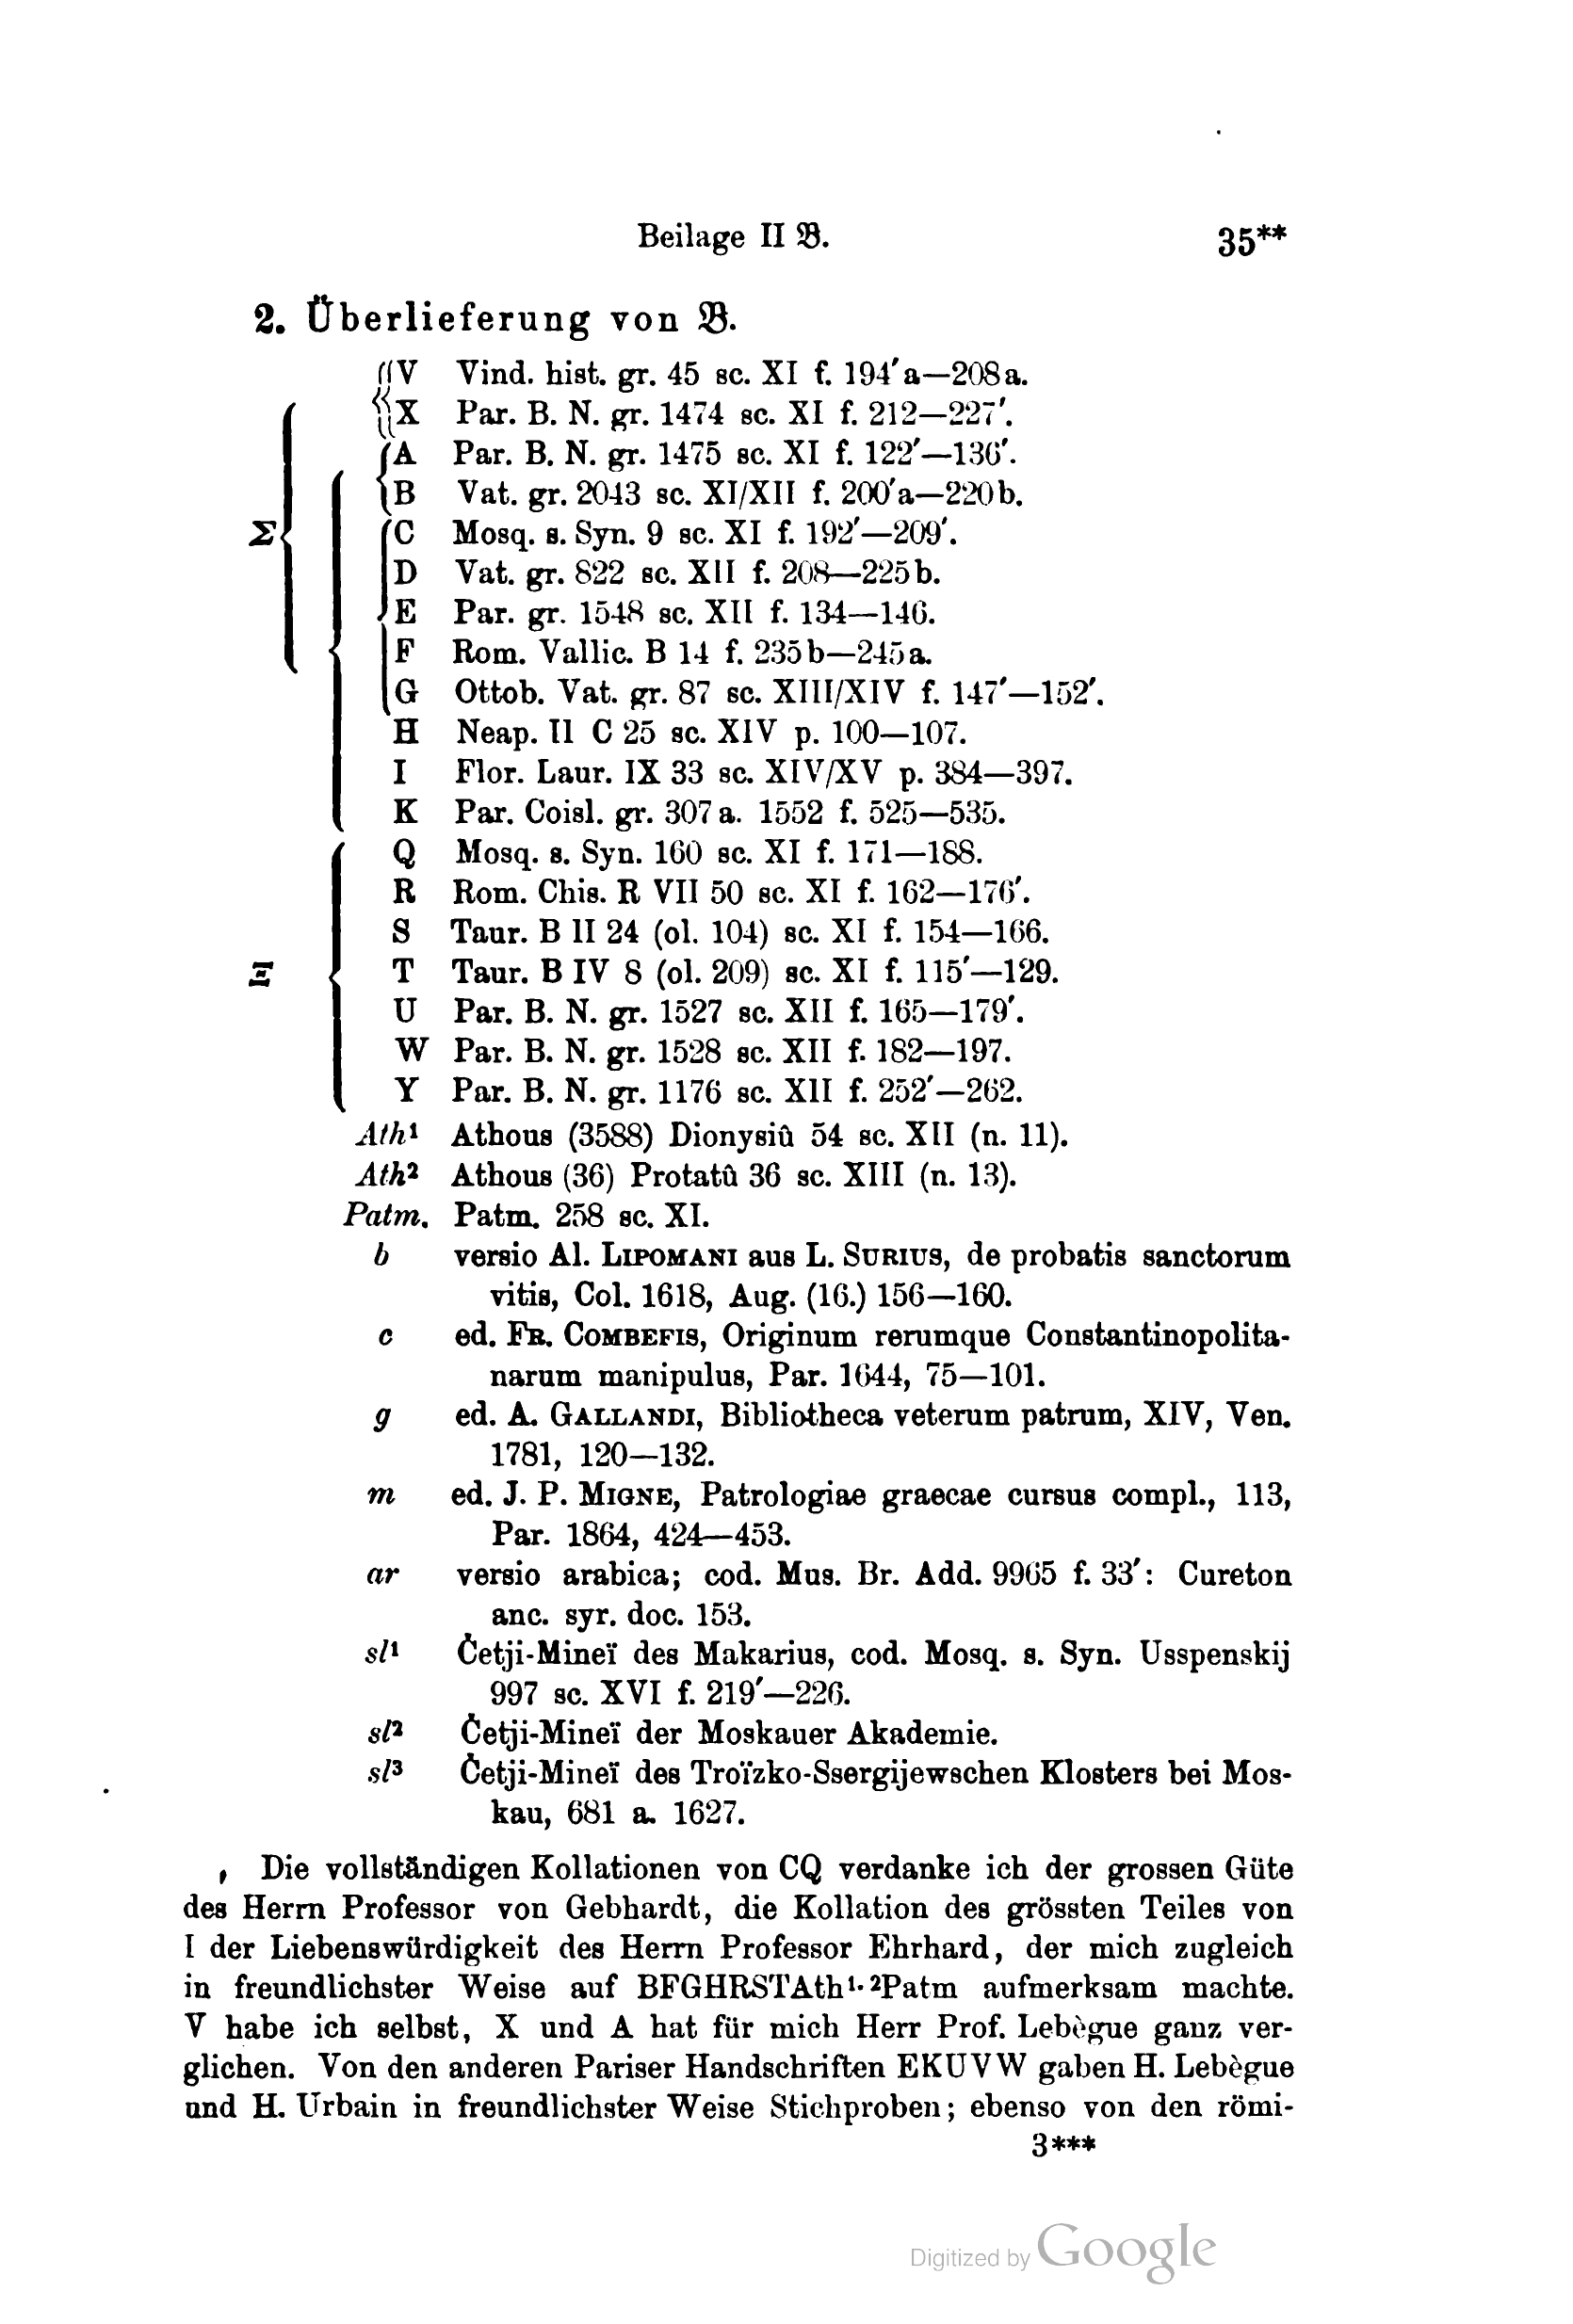 Beilage II 𝔅. 35**
2. Überlieferung von 𝔅.
V Vind. hist. gr. 45 sc. XI f. 194′a—208a.
X Par. B. N. gr. 1474 sc. XI f. 212—227′.
A Par. B. N. gr. 1475 sc. XI f. 122′—136′.
B Vat. gr. 2043 sc. XI/XII f. 200′a—220b.
Σ C Mosq. s. Syn. 9 sc. XI f. 192′—209′.
D Vat. gr. 822 sc. XII f. 208—225b.
E Par. gr. 1548 sc. XII f. 134—146.
F Rom. Vallic. B 14 f. 235b—245a.
G Ottob. Vat. gr. 87 sc. XIII/XIV f. 147′—152′.
H Neap. II C 25 sc. XIV p. 100—107.
I Flor. Laur. IX 33 sc. XIV/XV p. 384—397.
K Par. Coisl. gr. 307 a. 1552 f. 525—535.
Q Mosq. s. Syn. 160 sc. XI f. 171—188.
R Rom. Chis. R VII 50 sc. XI f. 162—176′.
S Taur. B II 24 (ol. 104) sc. XI f. 154—166.
Ξ T Taur. B IV 8 (ol. 209) sc. XI f. 115′—129.
U Par. B. N. gr. 1527 sc. XII f. 165—179′.
W Par. B. N. gr. 1528 sc. XII f. 182—197.
Y Par. B. N. gr. 1176 sc. XII f. 252′—262.
Ath¹ Athous (3588) Dionysiû 54 sc. XII (n. 11).
Ath² Athous (36) Protatû 36 sc. XIII (n. 13).
Patm. Patm. 258 sc. XI.
b versio Al. LIPOMANI aus L. SURIUS, de probatis sanctorum
vitis, Col. 1618, Aug. (16.) 156—160.
c ed. FR. COMBEFIS, Originum rerumque Constantinopolita-
narum manipulus, Par. 1644, 75—101.
g ed. A. GALLANDI, Bibliotheca veterum patrum, XIV, Ven.
1781, 120—132.
m ed. J. P. MIGNE, Patrologiae graecae cursus compl., 113,
Par. 1864, 424—453.
ar versio arabica; cod. Mus. Br. Add. 9965 f. 33′: Cureton
anc. syr. doc. 153.
sl¹ Četji-Mineï des Makarius, cod. Mosq. s. Syn. Usspenskij
997 sc. XVI f. 219′—226.
sl² Četji-Mineï der Moskauer Akademie.
sl³ Četji-Mineï des Troïzko-Ssergijewschen Klosters bei Mos-
kau, 681 a. 1627.
Die vollständigen Kollationen von CQ verdanke ich der grossen Güte
des Herrn Professor von Gebhardt, die Kollation des grössten Teiles von
I der Liebenswürdigkeit des Herrn Professor Ehrhard, der mich zugleich
in freundlichster Weise auf BFGHRSTAth¹·²Patm aufmerksam machte.
V habe ich selbst, X und A hat für mich Herr Prof. Lebègue ganz ver-
glichen. Von den anderen Pariser Handschriften EKUVW gaben H. Lebègue
und H. Urbain in freundlichster Weise Stichproben; ebenso von den römi-
3***
Digitized by Google